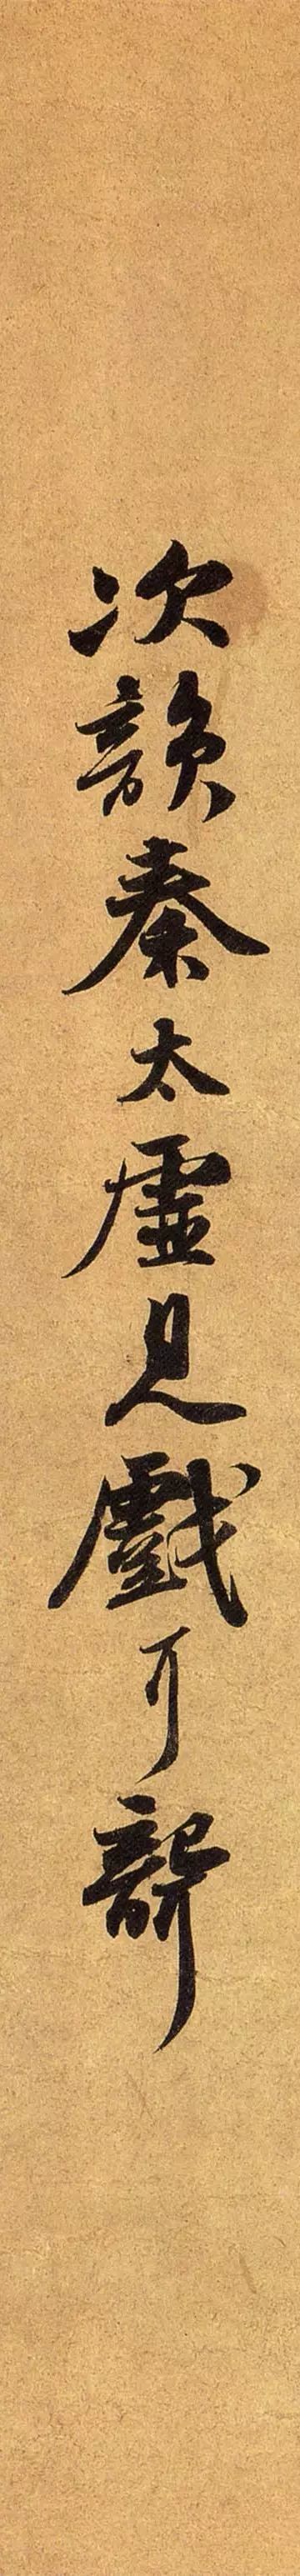 次韻秦太虛見戲耳聾